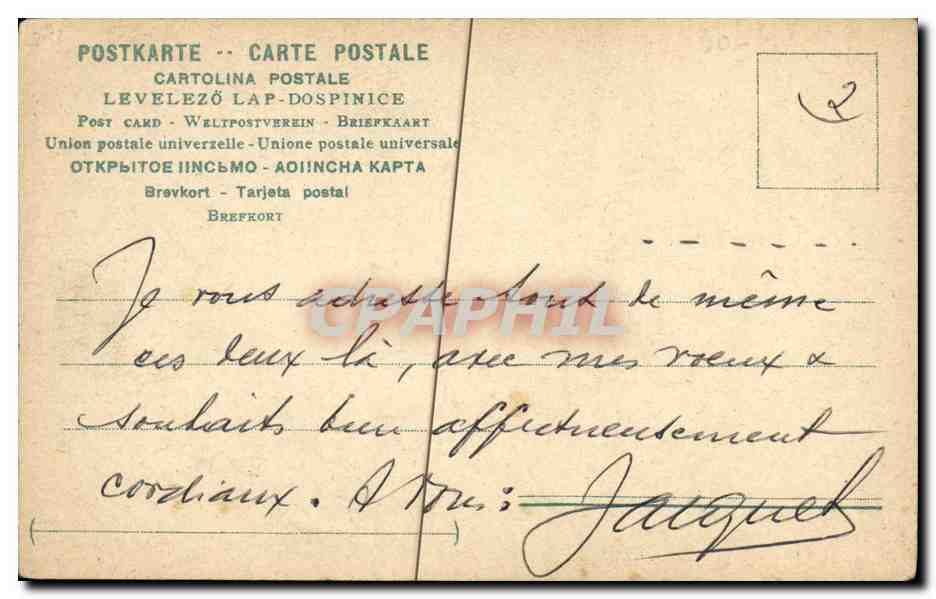 POSTKARTE -- CARTE POSTALE
CARTOLINA POSTALE
LEVELEZŐ LAP-DOSPINICE
POST CARD - WELTPOSTVEREIN - BRIEFKAART
Union postale univerzelle - Unione postale universale
ОТКРЫТОЕ IINCЬMO - AOIINCHA KAPTA
Brevkort - Tarjeta postal
BREFKORT
2
Je vous adresse tout de même
ces deux là, avec mes voeux &
souhaits bien affectueusement
cordiaux. A vous:
Jacquet
CPAPHIL